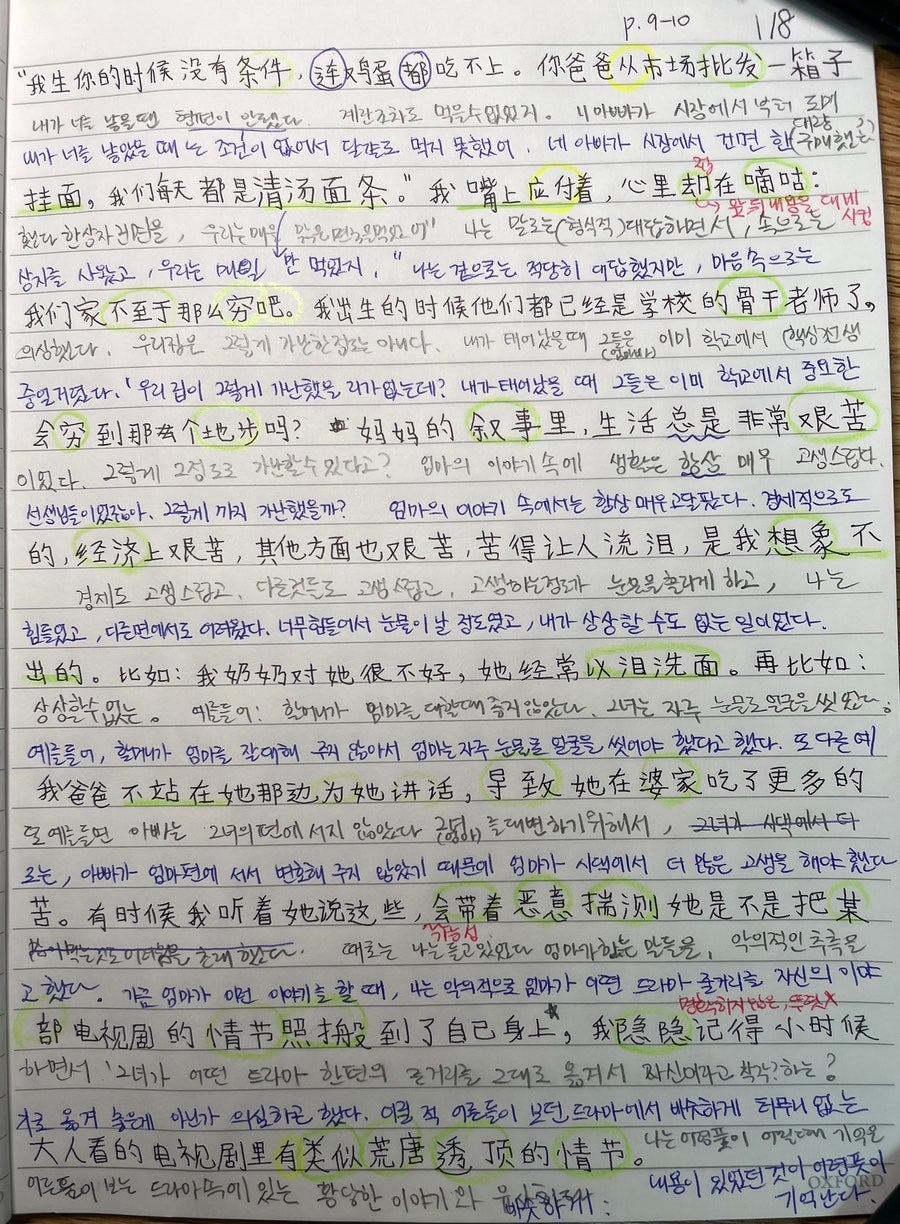 p.9-10 1/8
"我生你的时候没有条件，连鸡蛋都吃不上。你爸爸从市场批发一箱子
내가 너를 낳을땐 형편이 안됐다. 계란조차도 먹을수없었지. 니아빠가 시장에서부터 도매
내가 너를 낳았을 때는 조건이 없어서 달걀도 먹지 못했어. 네 아빠가 시장에서 건면 한
挂面，我们每天都是清汤面条。"我嘴上应付着，心里却在嘀咕：
했다 한상자 건면을, 우리는매일 맑은면국을먹었어" 나는 말로는(형식적)대답하면서, 속으로는
상자를 사왔고, 우리는 매일 만 먹었지." 나는 겉으로는 적당히 대답했지만, 마음속으로는
我们家不至于那么穷吧。我出生的时候他们都已经是学校的骨干老师了，
의심했다. 우리집은 그렇게 가난한정도는 아니다. 내가 태어났을때 그들은 이미 학교에서 핵심선생
(엄마아빠)
중얼거렸다. '우리집이 그렇게 가난했을 리가없는데? 내가태어났을 때 그들은 이미 학교에서 중요한
会穷到那么个地步吗？ 妈妈的叙事里，生活总是非常艰苦
이었다. 그렇게 그정도로 가난할수있다고? 엄마의 이야기속에 생활은 항상 매우 고생스럽다.
선생님들이었잖아. 그렇게 까지 가난했을까? 엄마의 이야기 속에서는 항상 매우고달팠다. 경제적으로도
的，经济上艰苦，其他方面也艰苦，苦得让人流泪，是我想象不
경제도 고생스럽고, 다른것들도 고생스럽고, 고생하는정도가 눈물을흘리게 하고, 나는
힘들었고, 다른면에서도 어려웠다. 너무힘들어서 눈물이 날 정도였고, 내가 상상할 수도 없는 일이었다.
出的。比如：我奶奶对她很不好，她经常以泪洗面。再比如：
상상할수없는. 예를들어: 할머니가 엄마를 대할때 좋지않았다. 그녀는 자주 눈물로얼굴을씻었다.
예를들어, 할머니가 엄마를 잘대해 주지 않아서 엄마는자주 눈물로 얼굴을 씻어야 했다고 했다. 또 다른 예
我爸爸不站在她那边为她讲话，导致她在婆家吃了更多的
또 예를들면 아빠는 그녀의편에서지 않았다 를대변하기위해서, 그녀가 시댁에서 더
로는, 아빠가 엄마편에 서서 변호해 주지 않았기 때문에 엄마가 시댁에서 더 많은 고생을 해야했다
苦。有时候我听着她说这些，会带着恶意揣测她是不是把某
가능성
때로는 나는듣고있었다 엄마가하는 말들을, 악의적인 추측을
고 했다. 가끔 엄마가 이런 이야기를 할 때, 나는 악의적으로 엄마가 어떤 드라마 줄거리를 자신의 이야
部电视剧的情节照搬到了自己身上，我隐隐记得小时候
하면서 '그녀가 어떤 드라마 한편의 줄거리를 그대로 옮겨서 자신이라고 착각?하는?
기로 옮겨 놓은게 아닌가 의심하곤 했다. 어릴 적 어른들이 보던 드라마에서 비슷하게 터무니 없는
大人看的电视剧里有类似荒唐透顶的情节。
나는어렴풋이 어릴때 기억은
어른들이 보는 드라마속에 있는 황당한 이야기와 비슷하게:
내용이 있었던 것이 어렴풋이
기억난다.
OXFORD